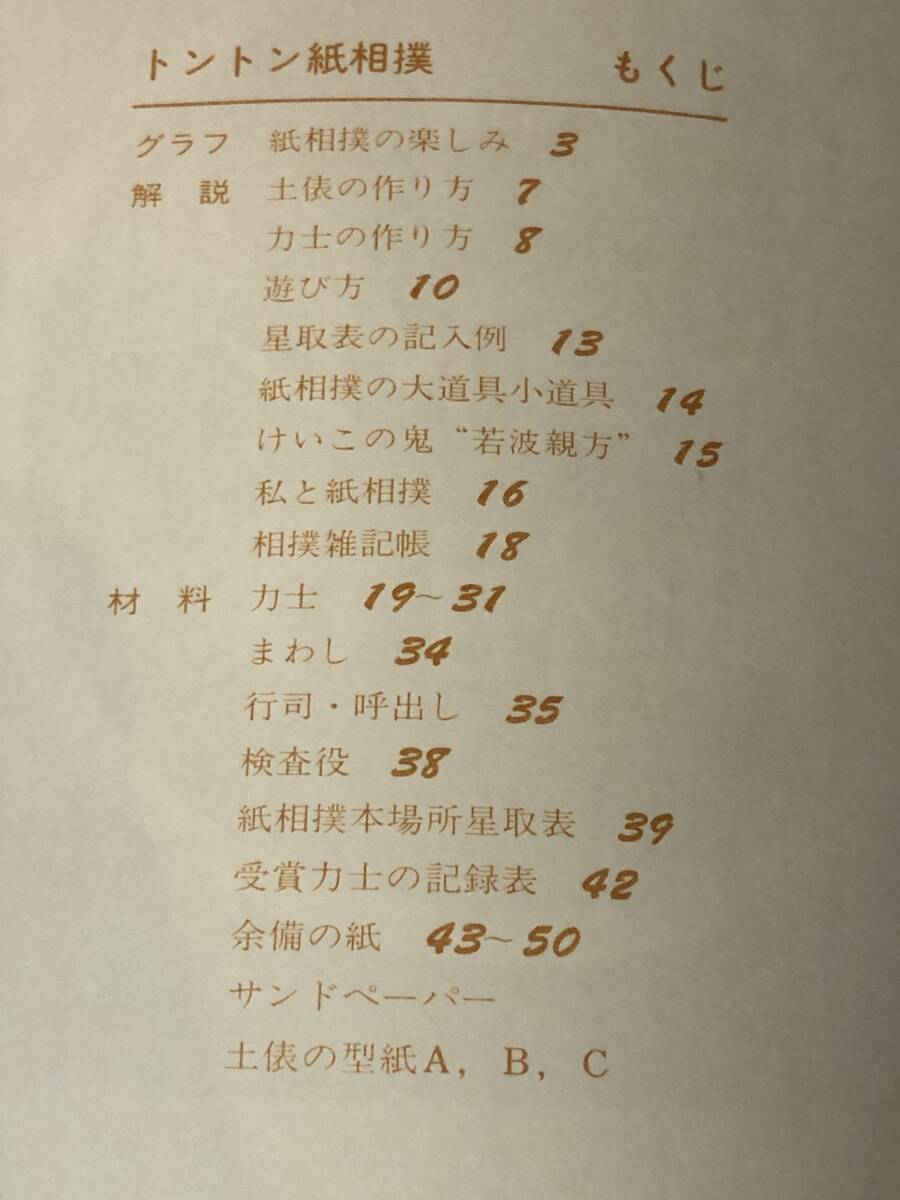 トントン紙相撲 もくじ
グラフ 紙相撲の楽しみ 3
解説 土俵の作り方 7
力士の作り方 8
遊び方 10
星取表の記入例 13
紙相撲の大道具小道具 14
けいこの鬼“若波親方” 15
私と紙相撲 16
相撲雑記帳 18
材料 力士 19~31
まわし 34
行司・呼出し 35
検査役 38
紙相撲本場所星取表 39
受賞力士の記録表 42
余備の紙 43~50
サンドペーパー
土俵の型紙A, B, C